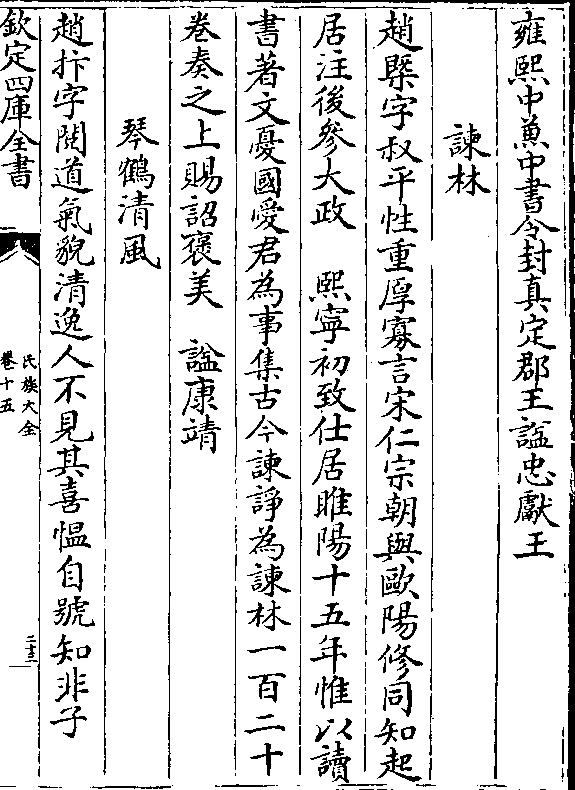 雍熙中兼中書令封真定郡王諡忠獻王
諫林
趙槩字叔平性重厚寡言宋仁宗朝與歐陽修同知起
居注後參大政　熙寧初致仕居睢陽十五年惟以讀
書著文憂國愛君為事集古今諫諍為諫林一百二十
卷奏之上賜詔褒美　諡康靖
琴鶴清風
趙抃字閱道氣貌清逸人不見其喜愠自號知非子
欽定四庫全書
氏族大全
卷十五
二十三